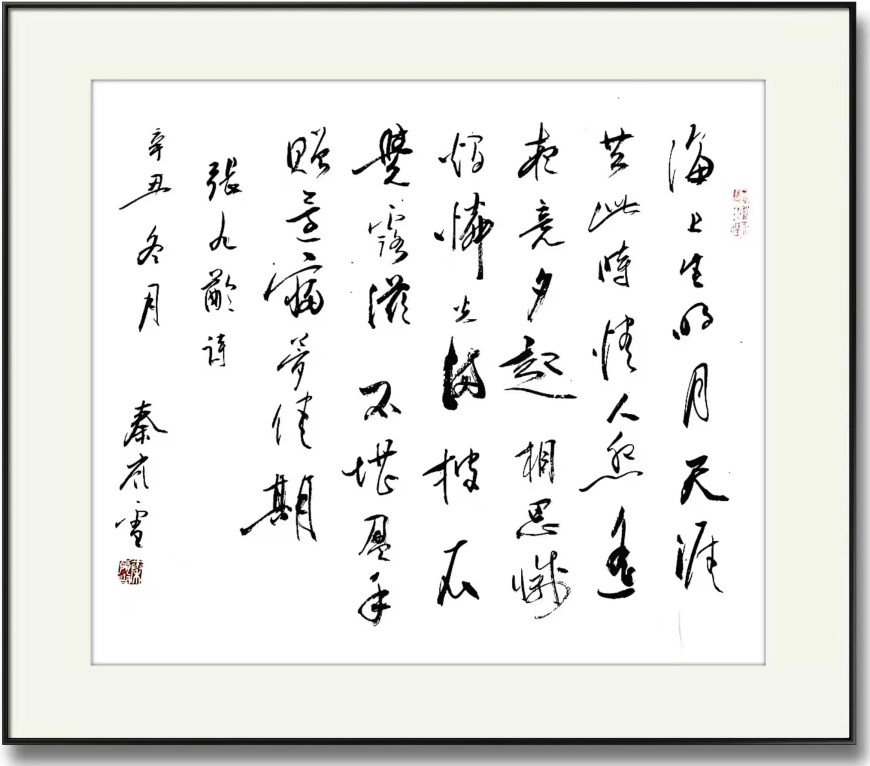 海上生明月天涯
共此時情人怨遥
夜竟夕起相思滅
燭憐光满披衣
覺露滋不堪盈手
贈還寢夢佳期
張九齡诗
辛丑冬月 秦岭雪